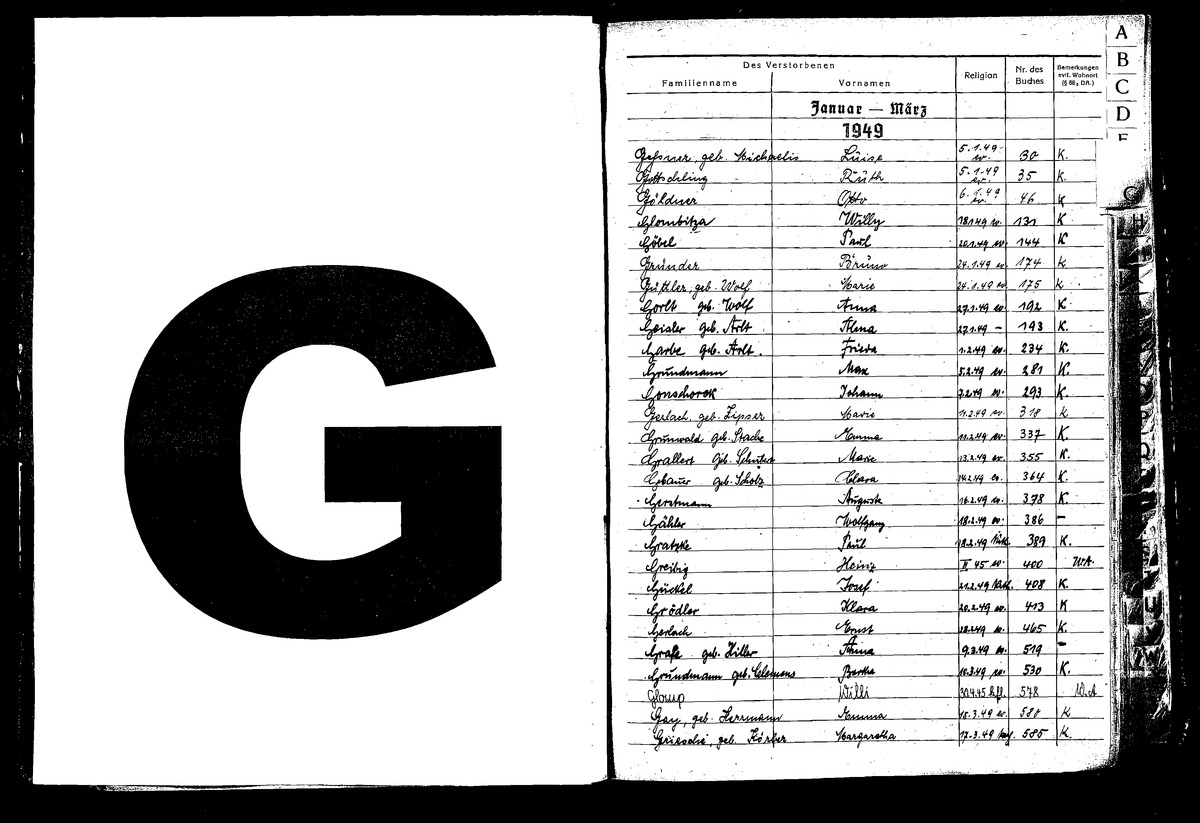 G
A
B
C
D
E
G
H
Des Verstorbenen
Familienname Vornamen Religion Nr. des Buches Bemerkungen evtl. Wohnort (§ 88, DA.)
Januar — März
1949
geb. Michaelis Luise 5.1.49 ev. 30 K.
Gottschling Ruth 5.1.49 ev. 35 K.
Göldner Otto 6.1.49 ev. 46 K
Glombitza Willy 18.1.49 ev. 131 K
Göbel Paul 20.1.49 ev. 144 K
Gründer Bruno 24.1.49 ev. 174 K
Güttler, geb. Wolf Marie 24.1.49 ev. 175 K
Gorlt geb. Wolf Anna 27.1.49 ev. 192 K.
Geisler geb. Arlt Alma 27.1.49 – 193 K.
Garbe geb. Arlt. Frieda 1.2.49 ev. 234 K.
Grundmann Max 5.2.49 ev. 281 K.
Gonschorek Johann 7.2.49 ev. 293 K.
Gerlach, geb. Zipser Marie 11.2.49 ev. 318 K
Grunwald geb. Stache Emma 11.2.49 ev. 337 K.
Grallert geb. Schubert Marie 13.2.49 ev. 355 K.
Gebauer geb. Scholz Clara 14.2.49 ev. 364 K.
Gerstmann Auguste 16.2.49 ev. 378 K.
Gähler Wolfgang 18.2.49 ev. 386 –
Gratzke Paul 18.2.49 kath. 389 K.
Greibig Heinz II 45 ev. 400 W.A.
Gückel Josef 21.2.49 kath. 408 K.
Grödler Klara 20.2.49 ev. 413 K
Gerlach Ernst 28.2.49 ev. 465 K.
Grafe geb. Hiller Anna 9.3.49 ev. 519 –
Grundmann geb. Clemens Bertha 10.3.49 ev. 530 K.
Willi 30.4.45 578 W.A
Gay, geb. Herrmann Emma 15.3.49 ev. 580 K
geb. Körber Margaretha 17.3.49 585 K.